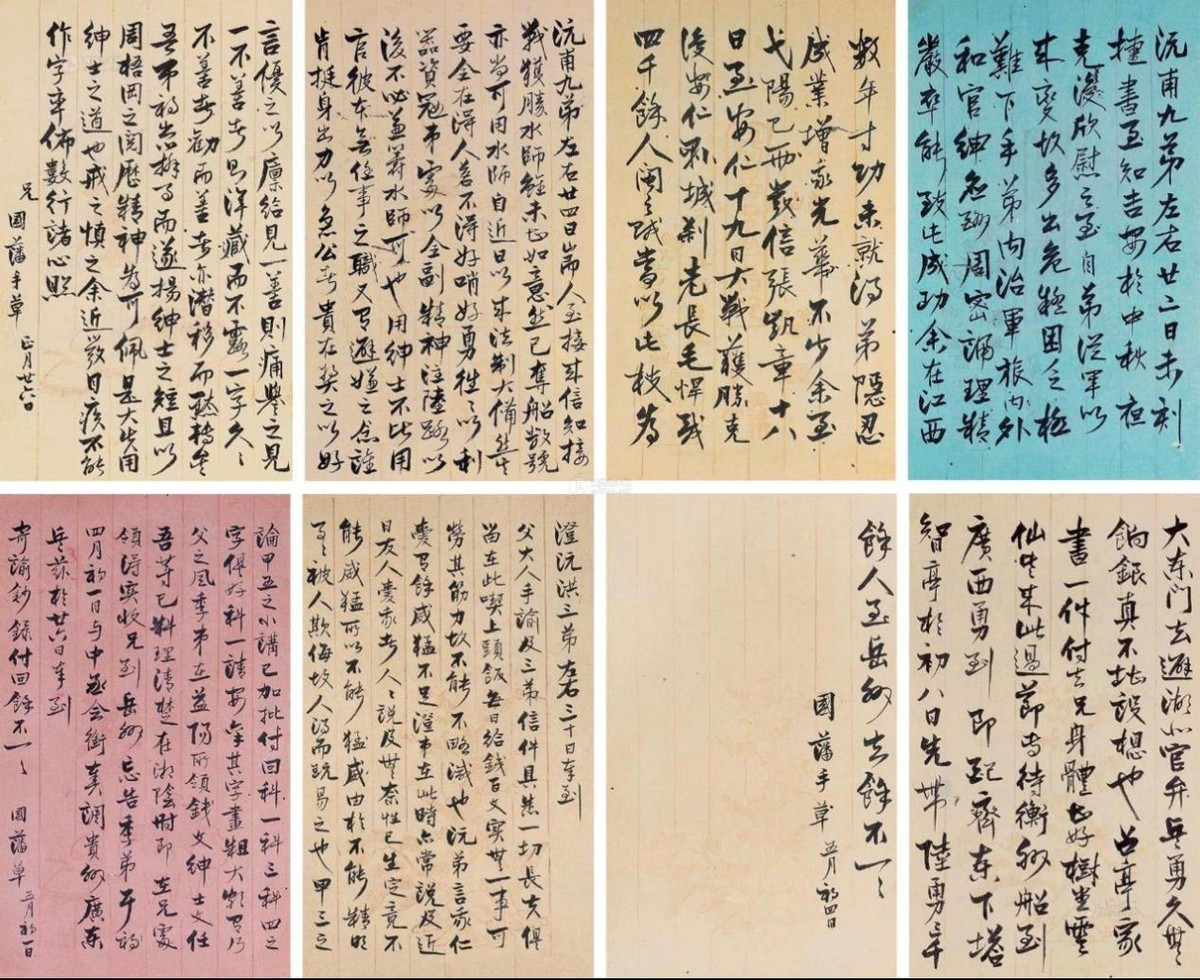 沅甫九弟左右廿二日未刻
接書至知吉安於中秋夜
克復欣慰之至自弟從軍以
來變故多出危極困乏極
難下手弟內治軍旅內外
和官紳周密調理精
嚴卒能致此成功余在江西
數年寸功未就得弟隱忍
成業增家光華不少余至
弋陽已兩發信張凱章十八
日至安仁十九日大戰獲勝克
復安仁縣城剎老長毛悍賊
四千餘人閩之賊當以此枝為
沅甫九弟左右廿四日崗人至接來信知接
戰獲勝水師雖未甚如意然已奪船數號
亦尚可用水師自近日以來法制大備然其
要全在得人若不得好哨好勇往往以利
器資寇弟處以全副精神注陸路以
後不必兼籌水師可也用紳士不比用
官彼本無任事之職又有避嫌之念誰
肯挺身出力以急公者貴在獎之以好
言優之以廩給見一善則痛譽之見
一不善者則渾藏而不露一字久久
不善者勸而善者亦潛移而默轉矣
吾弟初出辦事而遂揚紳士之短且以
周梧岡之閱歷精神為可佩是大失用
紳士之道也戒之慎之余近發目疾不能
作字率佈數行諸心照
兄國藩手草 正月廿六日
大東門去避湖北官弁兵勇久無
餉銀真不堪設想也召亭家
書一件付去兄身體甚好樹堂雲
仙皆來此過節專待衡州船到
廣西勇到即配齊東下塔
智亭於初八日先帶陸勇二千
餘人至岳州去餘不一一
國藩手草 五月初四日
澄沅洪三弟左右三十日奉到
父大人手諭及三弟信件具悉一切長夫俱
留在此喫上頭飯每日給錢百文實無一事可
勞其筋力故不能不略減也沅弟言我仁
愛有餘威猛不足澄弟在此時亦常說及近
日友人愛我者人人說及無奈性已生定竟不
能威猛所以不能猛威由於不能精明
事事被人欺侮故人得而玩易之也甲三之
論甲五之小講已加批付回科一科三科四之
字俱好科一請安禀其字畫粗大頗有乃
父之風季弟在益陽所領錢文紳士文任
吾等已料理清楚在湘陰時即在兄處
領得實收兄到岳州忘告季弟耳初
四月初一日与中丞會銜奏調貴州廣東
兵茲於廿六日奉到
寄諭鈔錄付回餘不一一 國藩草 三月初一日